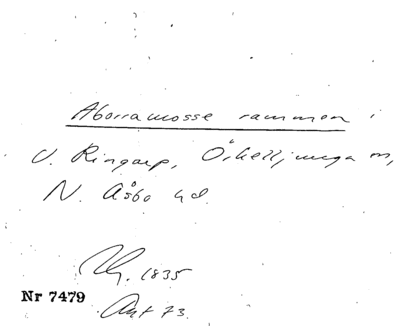 Aborramosse rammen i
V. Ringarp, Örkelljunga sn,
N. Åsbo hd.
1835
Nr 7479
Avt 73.